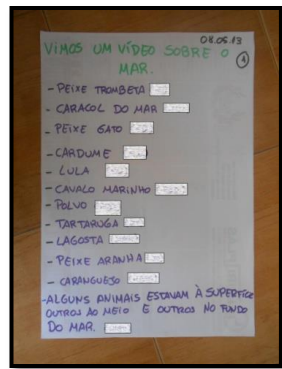 08.05.13
VIMOS UM VÍDEO SOBRE O
MAR.
- PEIXE TROMBETA
- CARACOL DO MAR
- PEIXE GATO
- CARDUME
- LULA
- CAVALO MARINHO
- POLVO
- TARTARUGA
- LAGOSTA
- PEIXE ARANHA
- CARANGUEJO
- ALGUNS ANIMAIS ESTAVAM À SUPERFÍCIE
OUTROS AO MEIO E OUTROS NO FUNDO
DO MAR.